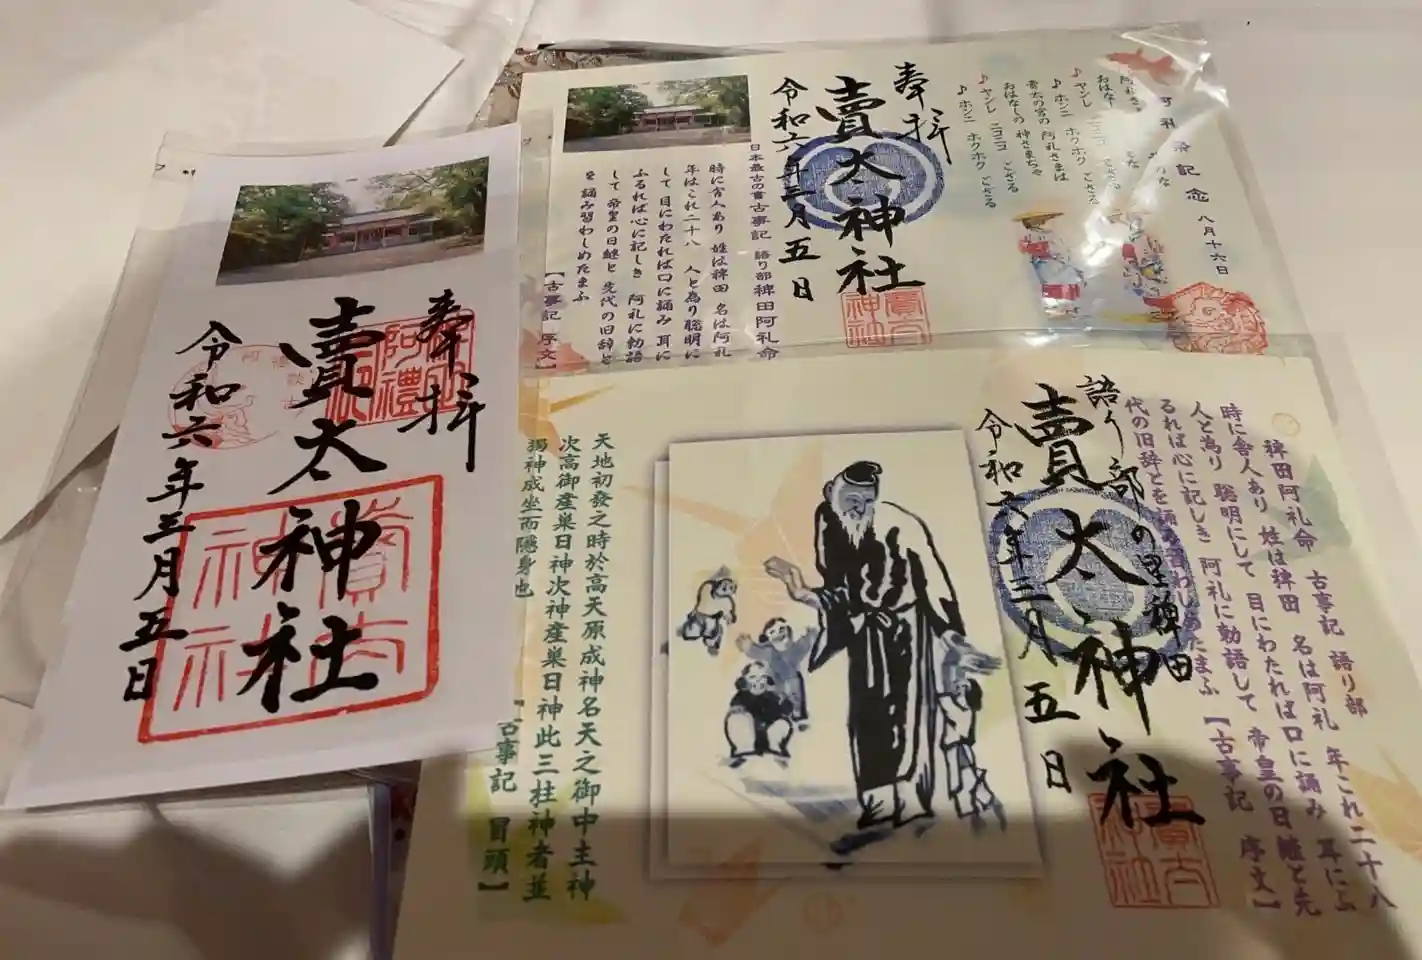 奉拝
賣太神社
令和六年三月五日
賣太神社
奉拝
賣太神社
令和六年三月五日
賣太神社
記念 八月十六日
おはなしの 神さまぢや
ヤンレ ニコニコ ござる
ホンニ ホクホク ござる
日本最古の書 古事記 語り部 稗田阿礼命
時に舎人あり 姓は稗田 名は阿礼
年はこれ二十八 人と為り聡明に
して 目にわたれば口に誦み 耳に
ふるれば心に記しき 阿礼に勅語
して 帝皇の日継と 先代の旧辞と
を誦み習わしめたまふ
【古事記 序文】
語り部の里 稗田
賣太神社
令和六年三月五日
賣太神社
稗田阿礼命 古事記 語り部
時に舎人あり 姓は稗田 名は阿礼 年これ二十八
人と為り 聡明にして 目にわたれば口に誦み 耳にふ
るれば心に記しき 阿礼に勅語して 帝皇の日継と先
代の旧辞とを誦み習わしめたまふ 【古事記 序文】
天地初發之時於高天原成神名天之御中主神
次高御産巣日神次神産巣日神此三柱神者並
獨神成坐而隱身也
【古事記 冒頭】